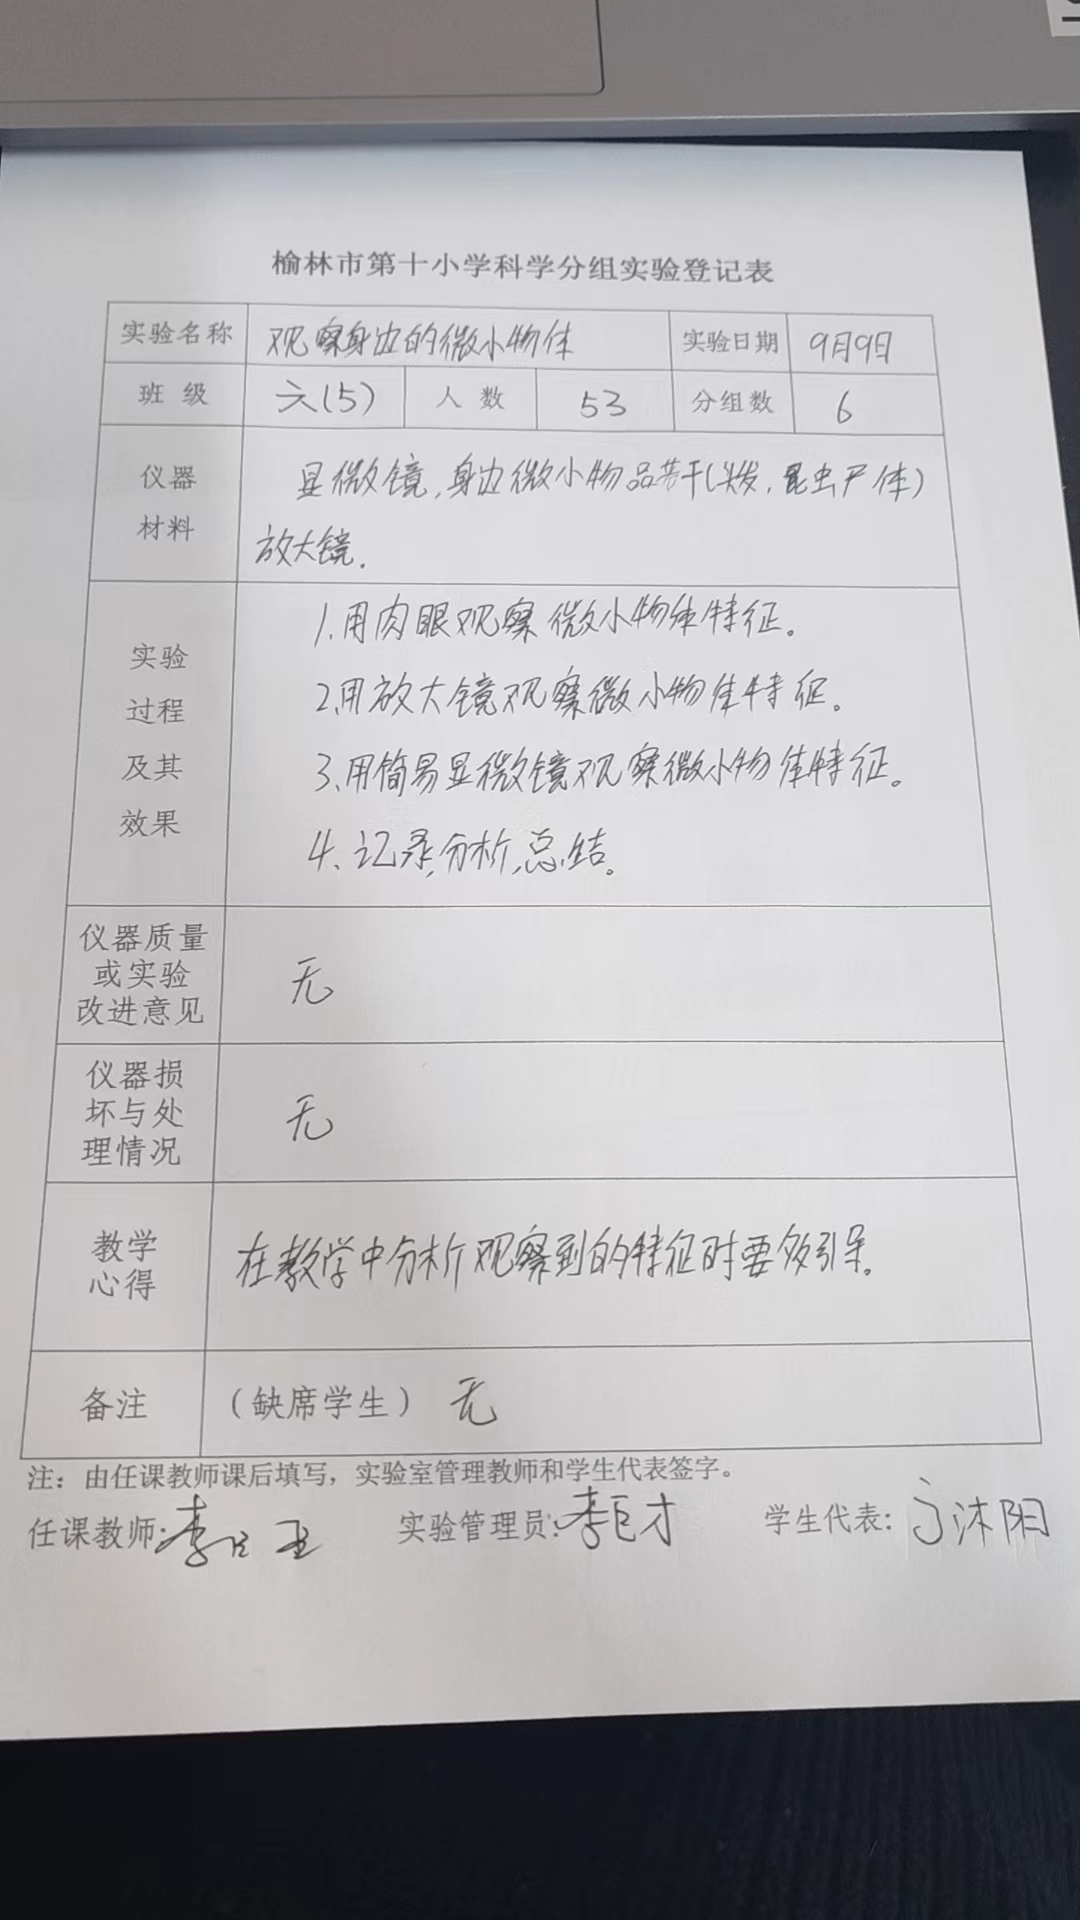 榆林市第十小学科学分组实验登记表
实验名称 观察身边的微小物体 实验日期 9月9日
班 级 六(5) 人 数 53 分组数 6
仪器
材料
显微镜,身边微小物品若干(头发,昆虫尸体)
放大镜.
实验
过程
及其
效果
1.用肉眼观察微小物体特征。
2.用放大镜观察微小物体特征。
3.用简易显微镜观察微小物体特征。
4、记录,分析,总结。
仪器质量
或实验
改进意见
无
仪器损
坏与处
理情况
无
教学
心得
在教学中分析观察到的特征时要多引导。
备注 (缺席学生) 无
注:由任课教师课后填写,实验室管理教师和学生代表签字。
任课教师: 实验管理员:李巨才 学生代表: 沐阳